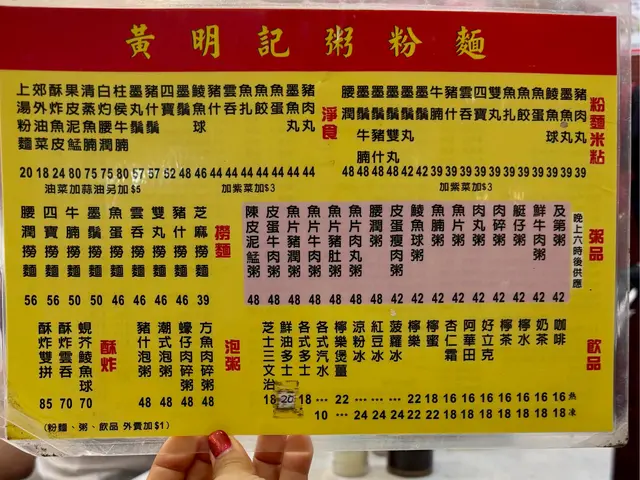 黃明記粥粉麵
粉麵米粘
豬肉丸 39
墨魚丸 39
魚蛋 39
魚餃 39
魚扎 39
雙丸 39
四寶 39
雲吞 39
豬什
牛腩 42
墨鬚
腰潤 48
加紫菜加$3
淨食
豬肉丸 44
墨魚丸 44
魚蛋 44
魚餃 44
魚扎 44
雲吞 44
豬什 46
鯪魚球 48
四寶 52
墨鬚 52
豬什鬚 57
墨丸鬚 57
柱侯牛腩 80
白灼腰潤 75
清蒸魚腩 75
果皮泥鯭 80
酥炸魚皮 24
郊外油菜 18
上湯粉麵 20
油菜加蒜油另加$5
加紫菜加$3
粥品
晚上六時後供應
及第粥 42
鮮牛肉粥 42
艇仔粥 42
肉碎粥 42
肉丸粥 42
魚片粥 42
魚腩粥 42
鯪魚球粥 42
皮蛋瘦肉粥 42
腰潤粥 48
魚片肉丸粥 48
魚片豬肚粥 48
魚片牛肉粥 48
魚片豬潤粥 48
皮蛋牛肉粥 48
陳皮泥鯭粥 48
撈麵
芝麻撈麵 39
豬什撈麵 46
雙丸撈麵 46
雲吞撈麵 46
魚蛋撈麵 46
墨鬚撈麵 50
牛腩撈麵 50
四寶撈麵 56
腰潤撈麵 56
飲品
熱
凍
咖啡 16 18
奶茶 16 18
檸水 16 18
檸茶 16 18
好立克 16 18
阿華田 16 18
杏仁霜 16 18
檸蜜 18 22
檸樂 22 22
菠蘿冰 … 24
紅豆冰 … 24
涼粉冰 … 24
檸樂煲薑 22 …
各式汽水 … 10
各式多士 18
鮮油多士 20
芝士三文治 18
泡粥
方魚肉碎粥 48
蠔仔肉碎粥 48
潮式泡粥 48
豬什泡粥 48
酥炸
蜆芥鯪魚球 70
酥炸雲吞 70
酥炸雙拼 85
(粉麵、粥、飲品 外賣加$1)